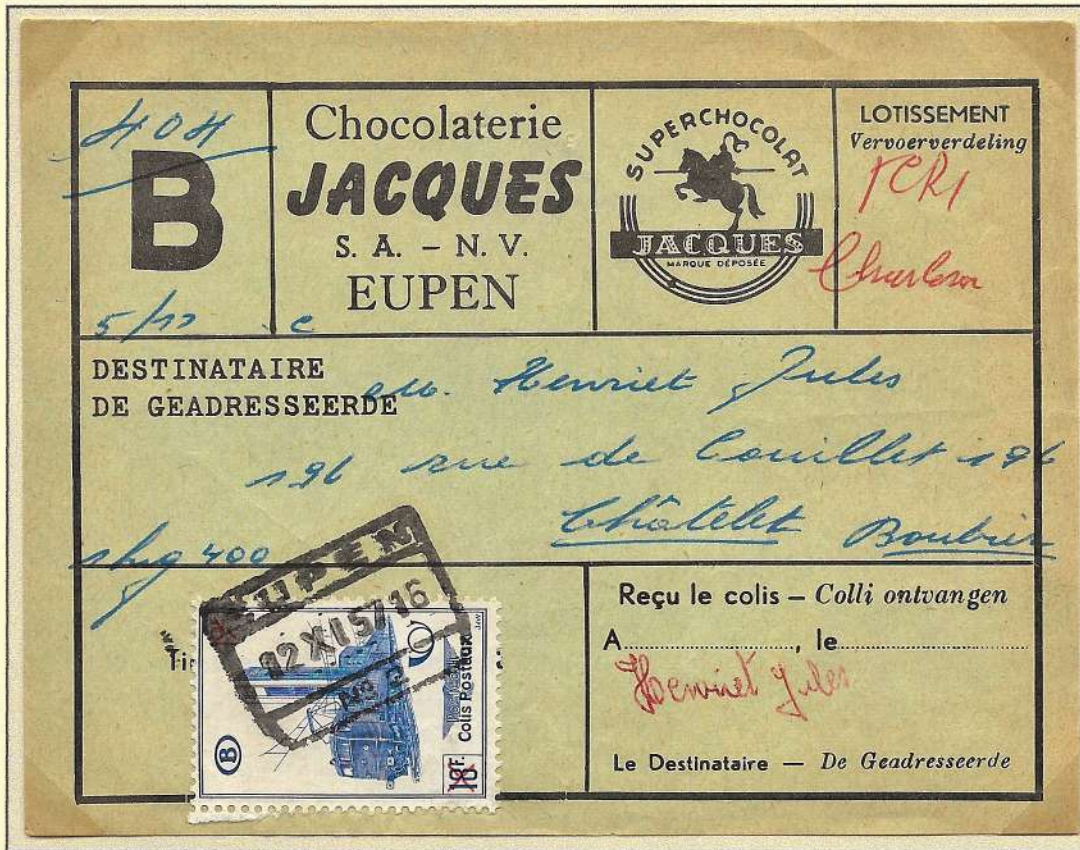 404
B
5/11 c
Chocolaterie
JACQUES
S. A. – N. V.
EUPEN
SUPERCHOCOLAT
JACQUES
MARQUE DÉPOSÉE
LOTISSEMENT
Vervoerverdeling
DESTINATAIRE
DE GEADRESSEERDE
M. Henriet Jules
196 rue de Couillet 196
Châtelet Boubier
1 kg 400
EUPEN
12 XI 57 16
Colis Postaux
B
Reçu le colis – Colli ontvangen
A, le
Henriet Jules
Le Destinataire — De Geadresseerde